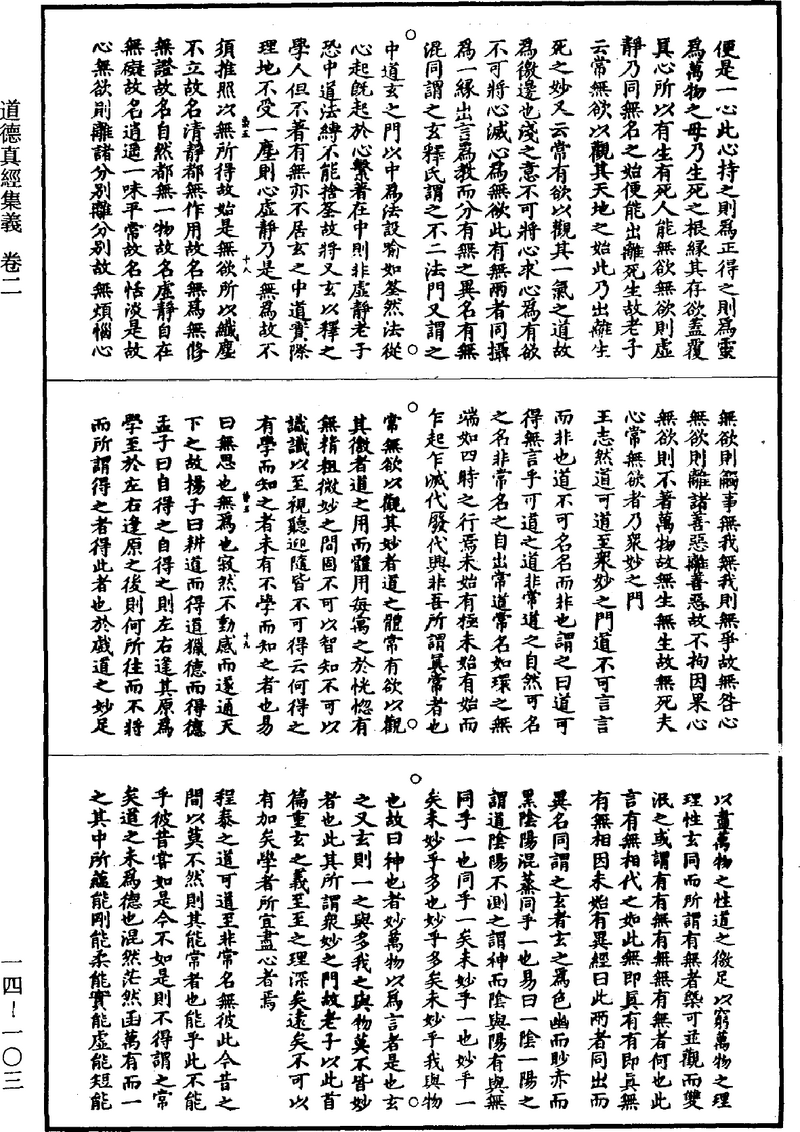 道德真經集義 卷二
一四-一〇三
便是一心此心持之則爲正得之則爲靈
爲萬物之母乃生死之根緣其存欲蓋覆
真心所以有生有死人能無欲無欲則虛
靜乃同無名之始便能出離死生故老子
云常無欲以觀其天地之始此乃出離生
死之妙又云常有欲以觀其一氣之道故
爲徼邊也淺之意不可將心求心爲有欲
不可將心滅心爲無欲此有無兩者同攝
爲一緣出言爲教而分有無之異名有無
混同謂之玄釋氏謂之不二法門又謂之
中道玄之門以中爲法設喻如筌然法從
心起旣起於心繫著在中則非虛靜老子
恐中道法縛不能捨筌故將又玄以釋之
學人但不著有無亦不居玄之中道實際
理地不受一塵則心虛靜乃是無爲故不
十八
須推照以無所得故始是無欲所以纖塵
不立故名清靜都無作用故名無爲無修
無證故名自然都無一物故名虛靜自在
無礙故名逍遥一味平常故名恬淡是故
心無欲則離諸分別離分別故無煩惱心
無欲則觸事無我無我則無爭故無咎心
無欲則離諸善惡離善惡故不拘因果心
無欲則不著萬物故無生無生故無死夫
心常無欲者乃衆妙之門
王志然道可道至衆妙之門道不可言言
而非也道不可名名而非也謂之曰道可
得無言乎可道之道非常道之自然可名
之名非常名之自出常道常名如環之無
端如四時之行焉未始有極未始有始而
乍起乍滅代廢代興非吾所謂眞常者也
常無欲以觀其妙者道之體常有欲以觀
其徼者道之用而體用每寓之於恍惚有
無精粗微妙之間固不可以智知不可以
識識以至視聽迎隨皆不可得云何得之
有學而知之者未有不學而知之者也易
十九
曰無思也無爲也寂然不動感而遂通天
下之故楊子曰耕道而得道獵德而得德
孟子曰自得之自得之則左右逢其原爲
學至於左右逢原之後則何所往而不將
而所謂得之者得此者也於戲道之妙足
以盡萬物之性道之徼足以窮萬物之理
理性玄同而所謂有無者槩可並觀而雙
泯之或謂有有無有無無有無者何也此
言有無相代之如此無即眞有有即眞無
有無相因未始有異經曰此兩者同出而
異名同謂之玄者玄之爲色幽而眇赤而
黑陰陽混蒸同乎一也易曰一陰一陽之
謂道陰陽不測之謂神而陰與陽有與無
同乎一也同乎一矣未妙乎一也妙乎一
矣未妙乎多也妙乎多矣未妙乎我與物
也故曰神也者妙萬物以爲言者是也玄
之又玄則一之與多我之與物莫不皆妙
者也此其所謂衆妙之門故老子以此首
篇重玄之義至至之理深矣遠矣不可以
有加矣學者所宜盡心者焉
程泰之道可道至非常名無彼此今昔之
間以莫不然則其能常者也能乎此不能
乎彼昔嘗如是今不如是則不得謂之常
矣道之未爲德也混然茫然函萬有而一
之其中所蘊能剛能柔能實能虛能短能